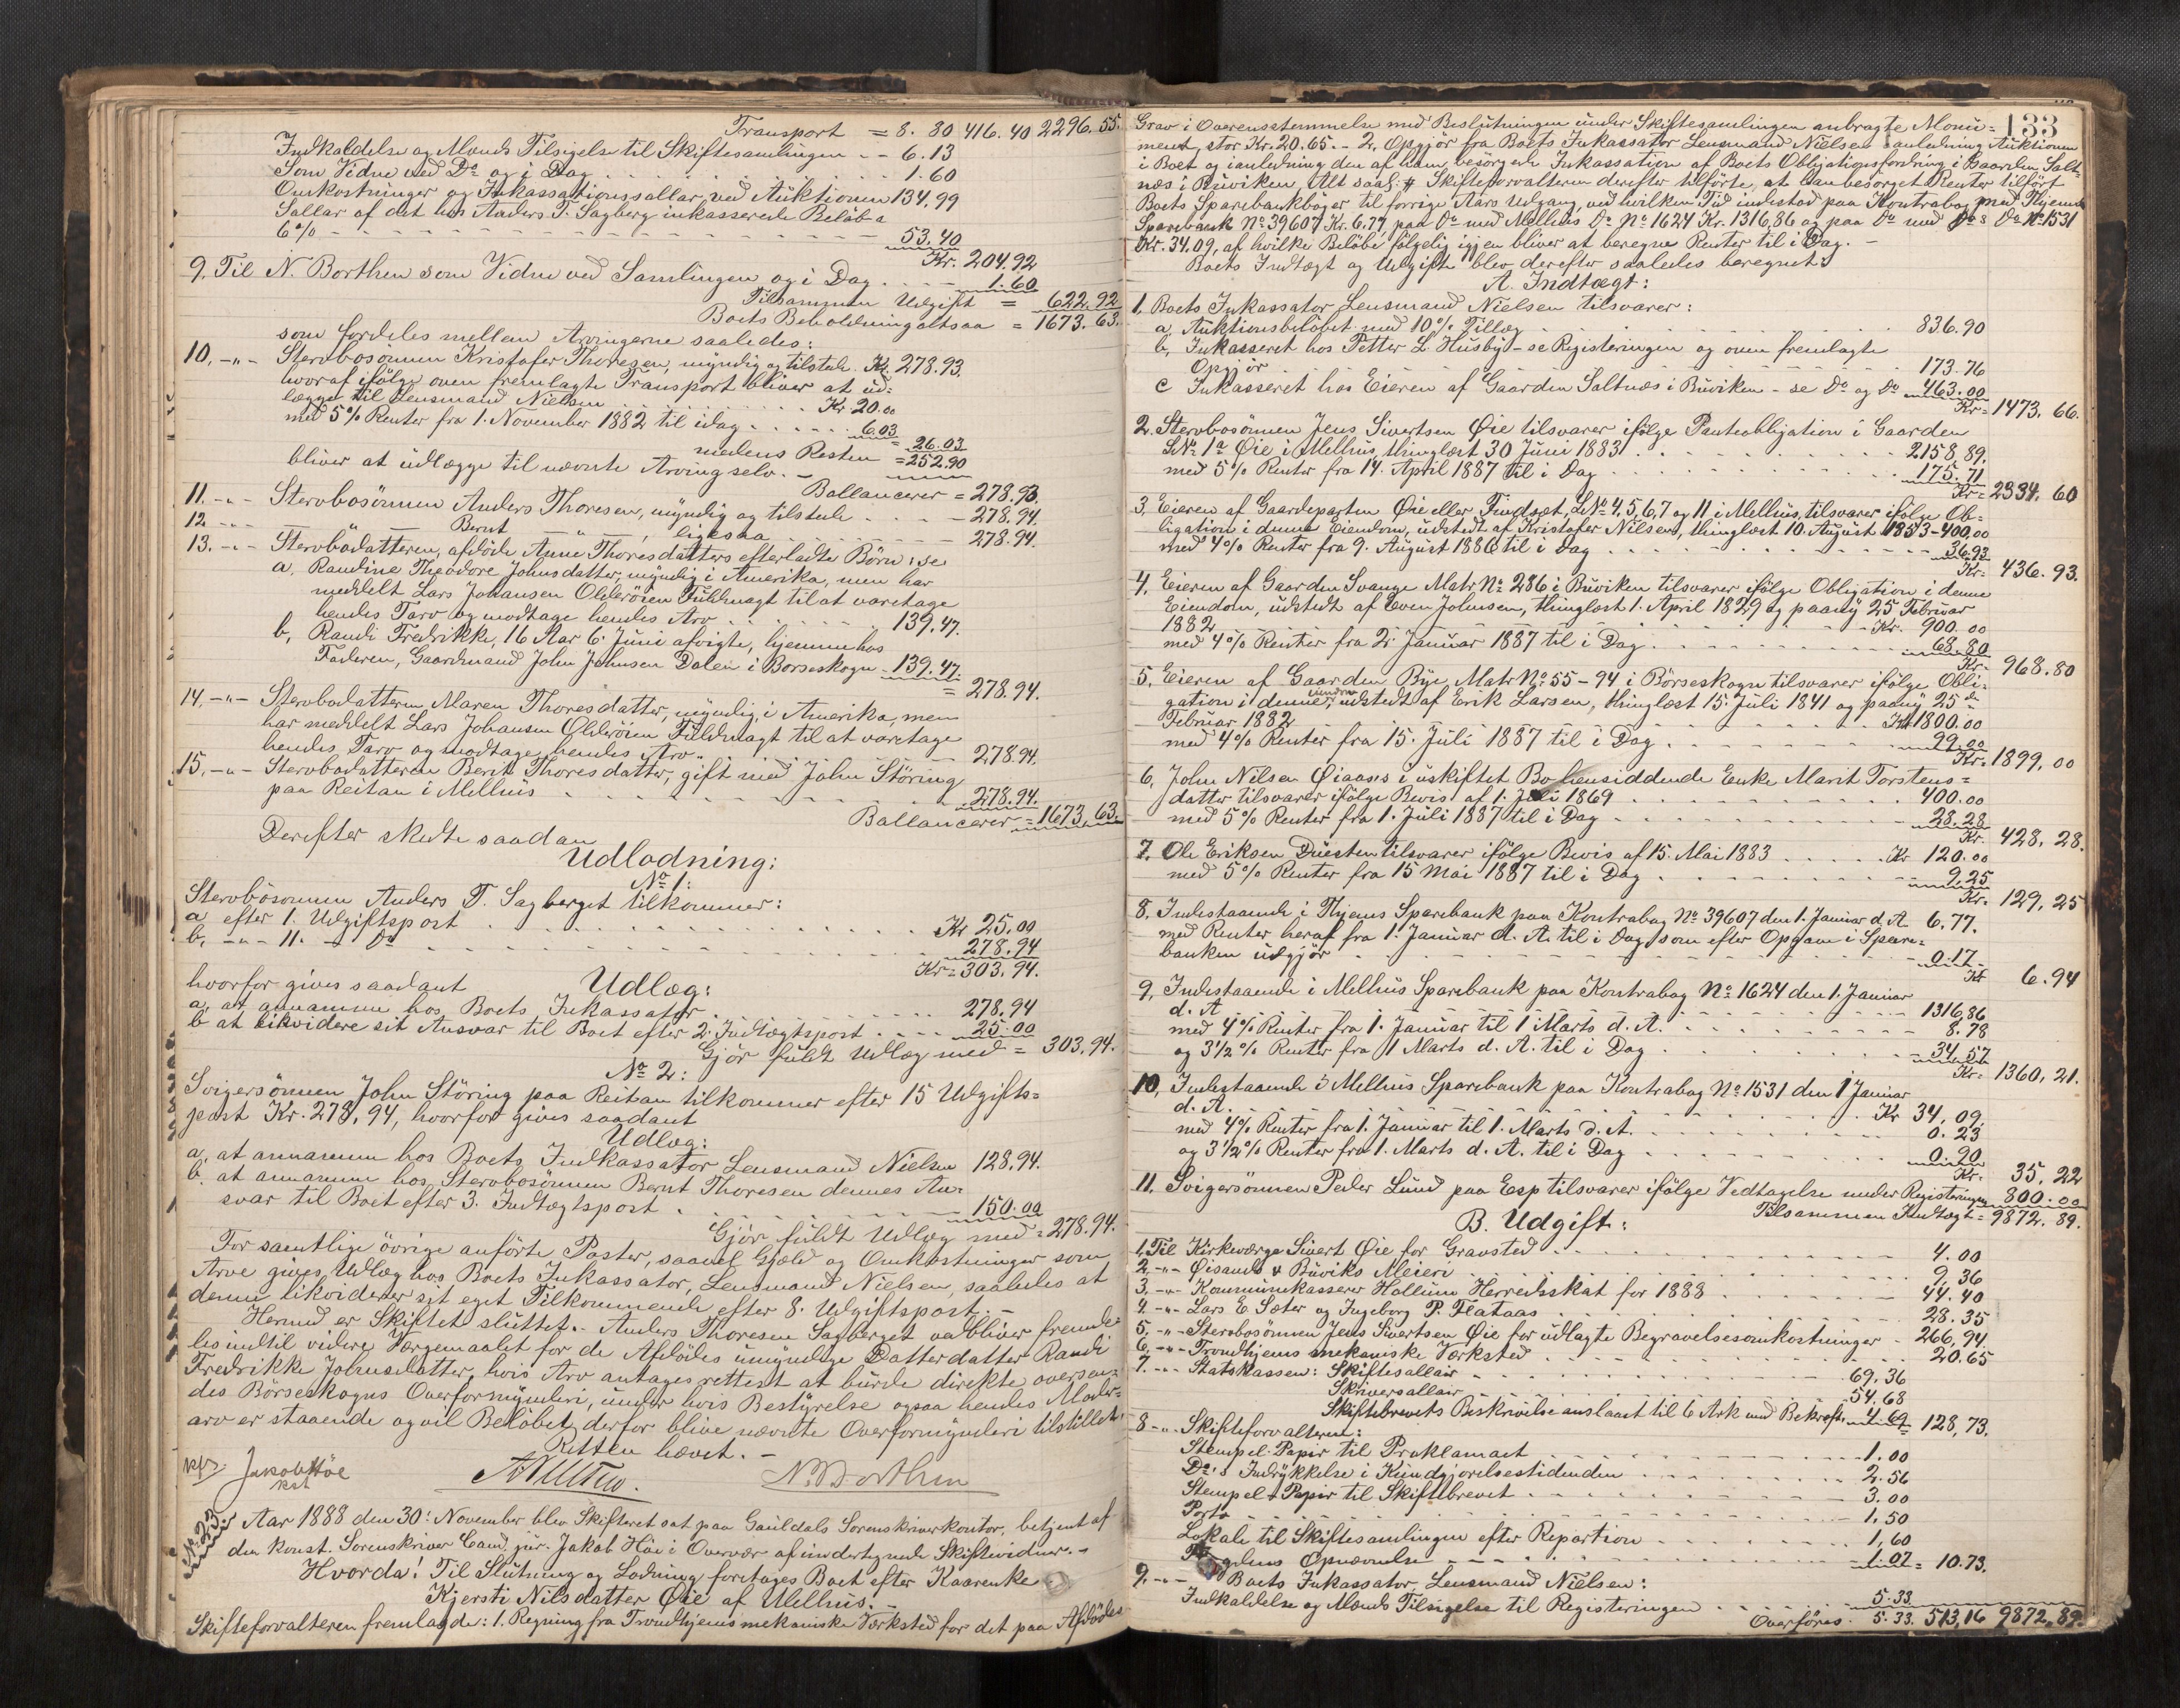 Transport = 8. 80 416. 40 2296. 55.
Indkaldelse og Mands Tilsigelse til Skiftesamlingen - - 6.13
Som Vidne ved Do og i Dag . . . 1.60
Omkostninger og Inkassationssallar ved Auktionen 134.99
Sallar af det hos Anders T. Sagberg inkasserede Beløb a
6% - - - 53.40
Kr. 204.92
9. Til N. Borthen som Vidne ved Samlingen og i Dag . . . 1.60
Tilsammen Udgift = 622.92
Boets Beholdning altsaa = 1673.63.
som fordeles mellem Arvingerne saaledes:
10. -„- Stervbosønnen Kristofer Thoresen, myndig og tilstede. Kr. 278.93.
hvoraf ifølge oven fremlagte Transport bliver at ud-
lægge til Lensmand Nielsen . . . Kr. 20.00
med 5% Renter fra 1. November 1882 til idag . . . 6.03
= 26.03
medens Resten = 252.90
bliver at udlægge til nævnte Arving selv. -
Ballancerer = 278.93.
11. -„- Stervbosønnen Anders Thoresen, myndig og tilstede . . . 278.94.
12 -„- — Bernt —„— , ligesaa . . . 278.94.
13. -„- Stervbodatteren, afdøde Anne Thoresdatters efterladte Børn:
a. Raudine Theodore Johnsdatter, myndig i Amerika, men har
meddelt Lars Johansen Olderøien Fuldmagt til at varetage
hendes Tarv og modtage hendes Arv . . . 139.47.
b. Randi Fredrikke, 16 Aar 6. Juni afvigte, hjemme hos
Faderen, Gaardmand John Johnsen Dalen i Børseskogn - 139.47.
= 278.94.
14. -„- Stervbodatteren Maren Thoresdatter, myndig, i Amerika, men
har meddelt Lars Johansen Olderøien Fuldmagt til at varetage
hendes Tarv og modtage hendes Arv . . . 278.94.
15. -„- Stervbodatteren Berit Thoresdatter, gift med John Støring
paa Reitan i Melhus . . . 278.94.
Ballancerer = 1673.63.
Derefter skedte saadan
Udlodning:
No 1:
Stervbosønnen Anders T. Sagberget tilkommer:
a. efter 1. Udgiftspost . . . Kr 25.00
b. -„- 11. -„- Do . . . 278.94
Kr = 303.94.
hvorfor gives saadant
Udlæg:
a, at annamme hos Boets Inkassator . . . 278.94
b at likvidere sit Ansvar til Boet efter 2. Indtægtspost . . . 25.00
Gjør fuldt Udlæg med = 303.94.
No 2:
Svigersønnen John Støring paa Reitan tilkommer efter 15 Udgifts-
post Kr. 278.94, hvorfor gives saadant
Udlæg:
a. at annamme hos Boets Inkassator Lensmand Nielsen 128.94.
b. at annamme hos Stervbosønnen Bernt Thoresen dennes An-
svar til Boet efter 3. Indtægtspost . . . 150.00
Gjør fuldt Udlæg med = 278.94.
For samtlige øvrige anførte Poster, saavel Gjæld og Omkostninger som
Arve gives Udlæg hos Boets Inkassator, Lensmand Nielsen, saaledes at
denne likviderer sit eget Tilkommende efter 8. Udgiftspost. -
Hermed er Skiftet sluttet. - Anders Thoresen Sagberget vedbliver fremde-
les indtil videre Værgemaalet for de Afdødes umyndige Datterdatter Randi
Fredrikke Johnsdatter, hvis Arv antages rettest at burde direkte oversen-
des Børseskogns Overformynderi, under hvis Bestyrelse ogsaa hendes Mødre-
arv er staaende og vil Beløbet derfor blive nævnte Overformynderi tilstillet.
Retten hævet. -
Jakob Høe
kst
N. Borthen
No 23.
Aar 1888 den 30: November blev Skifteret sat paa Guldals Sorenskriverkontor, betjent af
den konst. Sorenskriver Cand. jur. Jakob Høe i Overvær af undertegnede Skiftevidner. -
Hvorda! Til Slutning og Lodning foretages Boet efter Kaarenke
Kjersti Nilsdatter Øie af Melhus. -
Skifteforvalteren fremlagde: 1. Regning fra Trondhjems mekaniske Værksted for det paa Afdødes
133
Grav i Overensstemmelse med Beslutningen under Skiftesamlingen anbragte Monu-
ment, stor Kr. 20.65. - 2. Opgjør fra Boets Inkassator Lensmand Nielsen i anledning Auktionen
i Boet og i anledning den af ham besørgede Inkassation af Boets Obligationsfordring i Gaarden Salt-
næs i Buviken, Alt saal. # Skifteforvalteren derefter tilførte, at han besørget Renter tilført
Boets Sparebankbøger til forrige Aars Udgang, ved hvilken Tid indestod paa Kontrabog med Thjems
Sparebank No 39607 Kr. 6.77, paa Do med Melhus Do No 1624 Kr. 1316,86 og paa Do med Do s Do No 1531
Kr. 34.09, af hvilke Beløbe følgelig igjen bliver at beregne Renter til i Dag. -
Boets Indtægt og Udgift blev derefter saaledes beregnet:
A. Indtægt:
1. Boets Inkassator Lensmand Nielsen tilsvarer:
a, Auktionsbeløbet med 10% Tillæg . . . 836.90
b, Inkasseret hos Petter L. Husby - se Registeringen og oven fremlagte
Opgjør . . . 173.76
c Inkasseret hos Eieren af Gaarden Saltnæs i Buviken - se Do og Do - 463.00
Kr = 1473. 66.
2. Stervbosønnen Jens Sivertsen Øie tilsvarer ifølge Panteobligation i Gaarden
LNo 1a Øie i Melhus, thinglæst 30 Juni 1883 . . . 2158.89.
med 5% Renter fra 14. April 1887 til i Dag . . . 175.71
Kr = 2334. 60
3. Eieren af Gaardeparten Øie eller Findsæt, LNo 4, 5, 6, 7 og 11 i Melhus, tilsvarer ifølge Ob-
ligation i denne Eiendom, udstedt af Kristofer Nilsen, thinglæst 10. August 1853 - 400.00
med 4% Renter fra 9. August 1886 til i Dag . . . 36.93
Kr = 436. 93.
4. Eieren af Gaarden Svange Matr No 286 i Buviken tilsvarer ifølge Obligation i denne
Eiendom, udstedt af Even Johnsen, thinglæst 1. April 1829 og paany 25 Februar
1882 . . . Kr. 900.00
med 4% Renter fra 2. Januar 1887 til i Dag . . . 68.80
Kr = 968.80
5. Eieren af Gaarden Bye, Matr No 55-94 i Børseskogn tilsvarer ifølge Obli-
gation i denne Eiendom, udstedt af Erik Larsen, thinglæst 15. Juli 1841 og paany 25de
Februar 1882 . . . Kr 1800.00
med 4% Renter fra 15. Juli 1887 til i Dag . . . 99.00
Kr = 1899,00
6. John Nilsen Øiaas's i uskiftet Bo hensiddende Enke Marit Torstens-
datter tilsvarer ifølge Bevis af 1. Juli 1869 . . . 400.00
med 5% Renter fra 1. Juli 1887 til i Dag . . . 28.28
Kr. 428, 28.
7. Ole Eriksen Druesten tilsvarer ifølge Bevis af 15. Mai 1883 . . . Kr 120.00
med 5% Renter fra 15 Mai 1887 til i Dag . . . 9.25
Kr. 129,25
8. Indestaaende i Thjems Sparebank paa Kontrabog No 39607 den 1. Januar d. A. 6.77.
med Renter heraf fra 1. Januar d. A. til i Dag, som efter Opgave i Spare-
banken udgjør . . . 0.17
Kr 6.94
9. Indestaaende i Melhus Sparebank paa Kontrabog No 1624 den 1. Januar
d. A. . . . 1316,86
med 4% Renter fra 1. Januar til 1 Marts d. A. . . . 8.78
og 3 1/2 % Renter fra 1 Marts d. A. til i Dag . . . 34.57
Kr. 1360,21.
10. Indestaaende i Melhus Sparebank paa Kontrabog No 1531 den 1 Januar
d. A. . . . Kr 34,09
med 4% Renter fra 1. Januar til 1. Marts d. A. . . . 0.23
og 3 1/2 % Renter fra 1. Marts d. A. til i Dag . . . 0.90
Kr. 35,22
11. Svigersønnen Peder Lund paa Esp tilsvarer ifølge Vedtagelse under Registeringen 800.00
Tilsammen Indtægt = 9872.89.
B. Udgift:
1. Til Kirkeværge Sivert Øie for Gravsted . . . 4.00
2. -„- Øisands & Buviks Meieri . . . 9.36
3. -„- Kommunekasserer Hollum Herredsskat for 1888 . . . 44.40
4. -„- Lars E. Sæter og Ingeborg P. Flataas . . . 28.35
5. -„- Stervbosønnen Jens Sivertsen Øie for udlagte Begravelsesomkostninger - 266,94.
6. -„- Trondhjems mekaniske Værksted . . . 20.65
7. -„- Statskassen: Skiftesallair . . . 69.36
Skriversallair . . . 54.68
Skiftebrevets Beskrivelse anslaaet til 6 Ark med Bekræft. 4.69 = 128,73.
8 -„- Skifteforvalteren:
Stempel-Papir til Proklamaet . . . 1.00
Do's Indrykkelse i Kundgjørelsestidenden . . . 2.56
Stempel & Papir til Skiftebrevet . . . 3.00
Porto . . . 1.50
Lokale til Skiftesamlingen efter Repartion . . . 1,60
Opnævnelse . . . 1.07 = 10.73.
9. -„- Boets Inkassator, Lensmand Nielsen:
Indkaldelse og Mands Tilsigelse til Registeringen . . . 5.33
Overføres. 5.33. 513,16 9872.89.